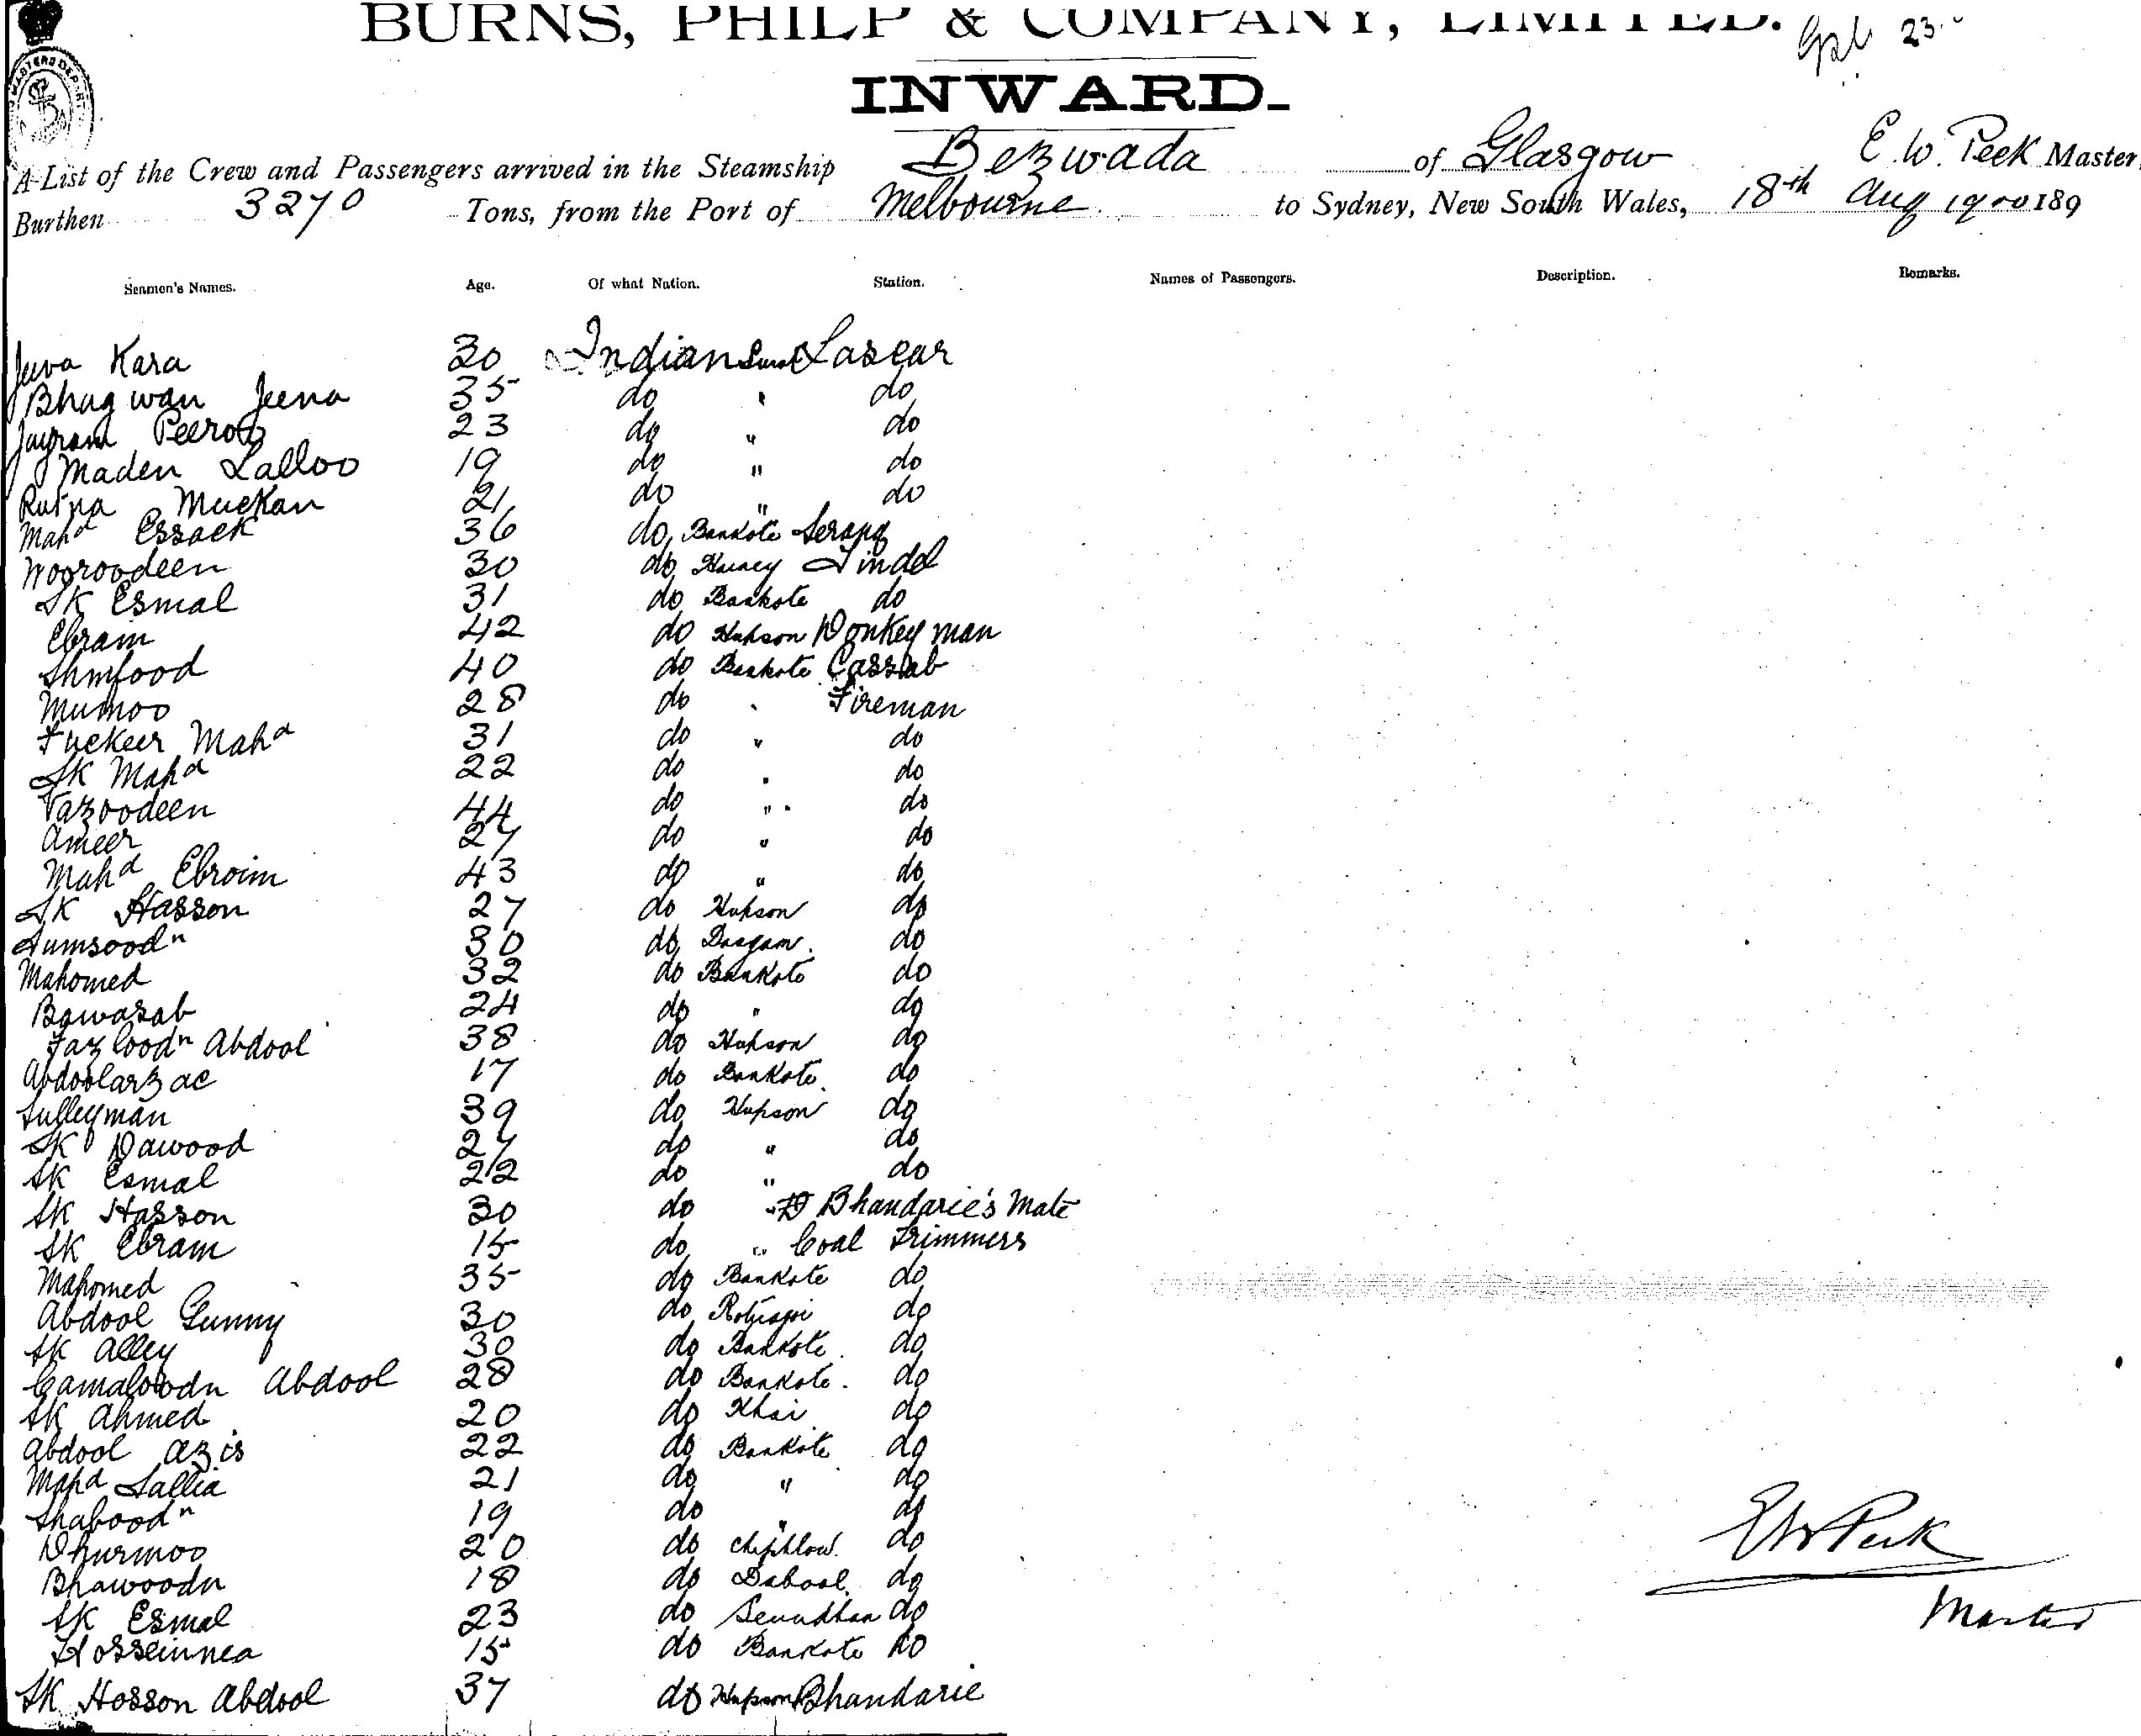 BURNS, PHILP & COMPANY, LIMITED.
23
INWARD.
A List of the Crew and Passengers arrived in the Steamship Bezwada of Glasgow E. W. Peek Master,
Burthen 3270 Tons, from the Port of Melbourne to Sydney, New South Wales, 18th Aug 1900 189
Seamen's Names. Age. Of what Nation. Station. Names of Passengers. Description. Remarks.
Juva Kara 30 Indian Surat Lascar
Bhagwan Jeena 35 do " do
Jayram 23 do " do
Maden Lalloo 19 do " do
Rutna Muckan 21 do " do
Mahd Essack 36 do Bankote Serang
Nooroodeen 30 do Tindel
SK Esmal 31 do Bankote do
Ebram 42 do Hupson Donkeyman
40 do Bankote Cassab
Mumoo 28 do " Fireman
Fuckeer Mahd 31 do " do
SK Mahd 22 do " do
44 do " do
Ameer 27 do " do
Mahd Ebroim 43 do " do
SK Hasson 27 do Hupson do
Sumsoodn 30 do do
Mahomed 32 do Bankote do
Bawasab 24 do " do
Fazloodn Abdool 38 do Hupson do
Abdoolarzac 17 do Bankote do
Sulleyman 39 do Hupson do
SK Dawood 27 do " do
SK Esmal 22 do " do
SK Hasson 30 do " Bhandarie's Mate
SK Ebram 15 do " Coal Trimmers
Mahomed 35 do Bankote do
Abdool Gunny 30 do do
SK Alley 30 do Bankote do
Camaloodn Abdool 28 do Bankote do
SK Ahmed 20 do Khai do
Abdool Azis 22 do Bankote do
Mahd Sallia 21 do " do
Shaboodn 19 do " do
Dhurmoo 20 do do
Bhawoodn 18 do Dabool do
SK Esmal 23 do do
Hosseinnea 15 do Bankote do
SK Hosson Abdool 37 do Hupson Bhandarie
EW Peek
Master